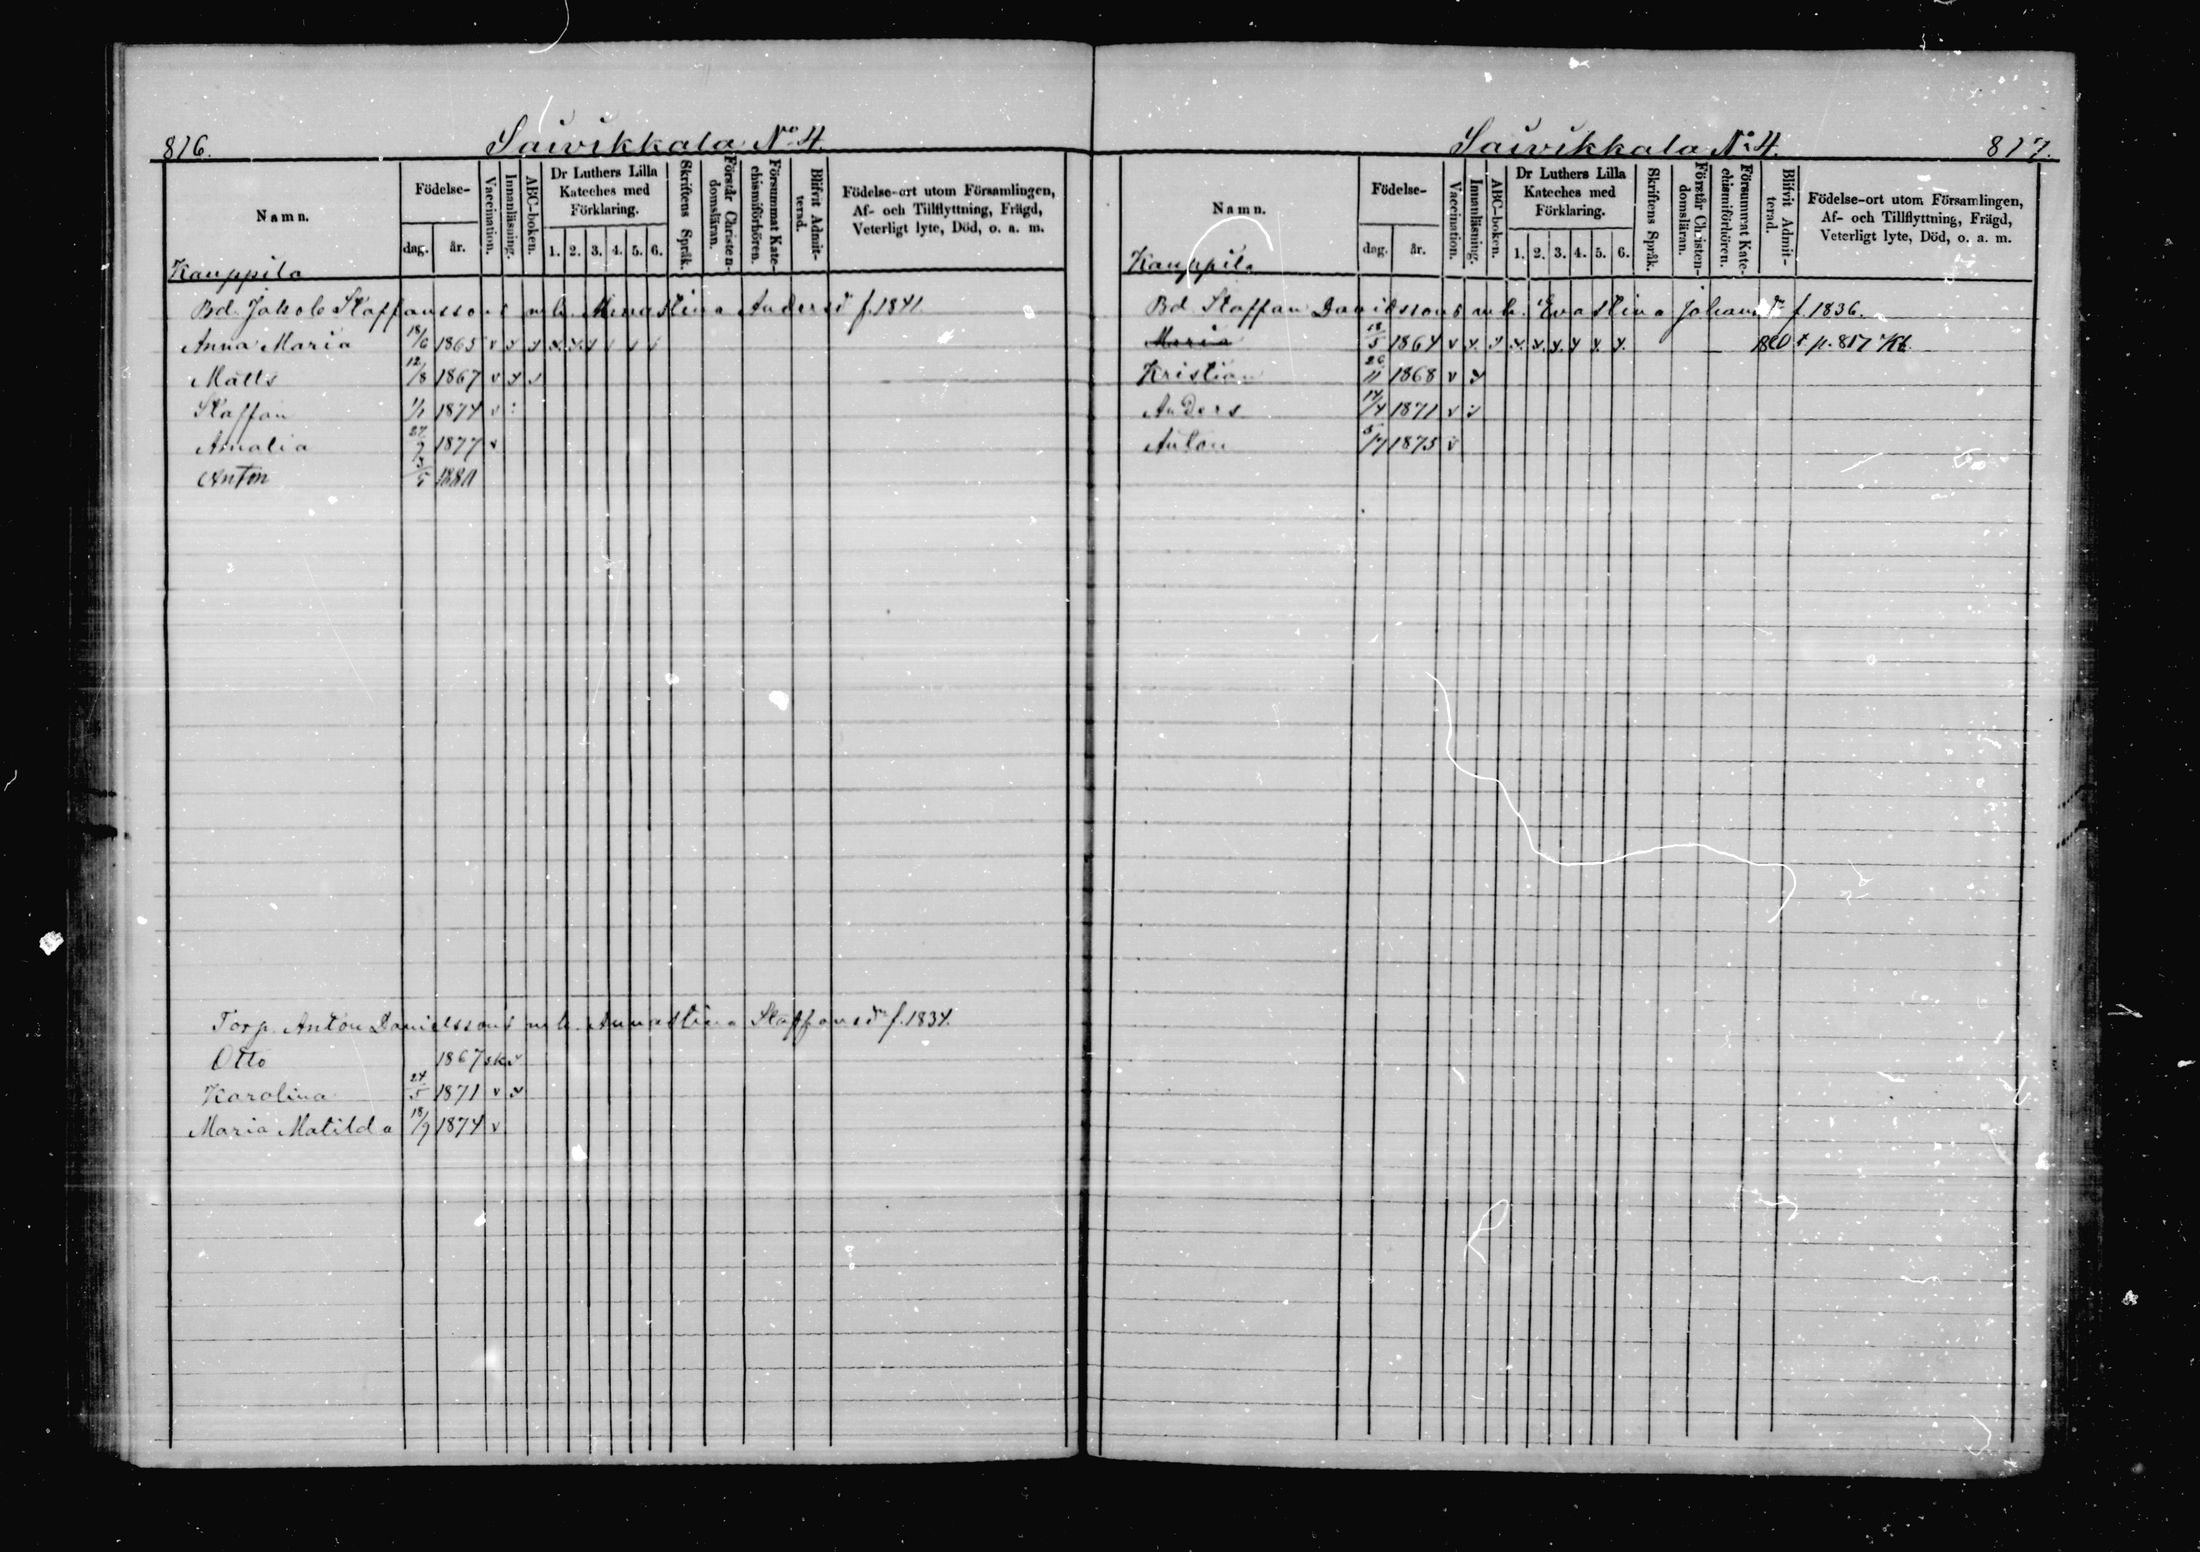 816.
Saivikkala No 4
Namn.
Födelse-
dag.
år.
Vaccination.
Innanläsning.
ABC-boken.
Dr Luthers Lilla
Kateches med
Förklaring.
1. 2. 3. 4. 5. 6.
Skriftens Språk.
Förstår Christen-
domsläran.
Försummat Kate-
chismiförhören.
Blifvit Admit-
terad.
Födelse-ort utom Församlingen,
Af- och Tillflyttning, Frägd,
Veterligt lyte, Död, o. a. m.
Kauppila
Bd. Jakob Staffanssons m h. Annastina Andersd f. 1841
Anna Maria 18/6 1865 v v v x x v v v v
Matts 12/8 1867 v v v
Staffan 1/1 1874 v
Amalia 27/9 1877 v
Anton 3/5 1880
Torp. Anton Danielssons m h. Annastina Staffansdr f. 1834.
Otto 1867 sk v
Karolina 24/5 1871 v v
Maria Matilda 18/9 1874 v
Saivikkala No 4.
817.
Namn.
Födelse-
dag.
år.
Vaccination.
Innanläsning.
ABC-boken.
Dr Luthers Lilla
Kateches med
Förklaring.
1. 2. 3. 4. 5. 6.
Skriftens Språk.
Förstår Christen-
domsläran.
Försummat Kate-
chismiförhören.
Blifvit Admit-
terad.
Födelse-ort utom Församlingen,
Af- och Tillflyttning, Frägd,
Veterligt lyte, Död, o. a. m.
Kauppila
Bd. Staffan Danielssons m h. Evastina Johansdr f. 1836.
Maria 18/5 1864 v x v x x x x x x 1880 p. 817 Kb.
Kristian 26/11 1868 v v
Anders 17/4 1871 v v
Anton 5/7 1875 v